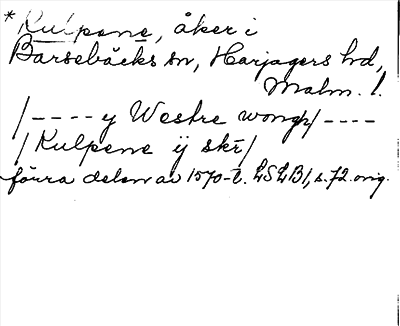 *Kulpene, åker i
Barsebäcks sn, Harjagers hd,
Malm. l.
/---- y Westre wongh/----
/Kulpene ÿ skr̄/
förra delen av 1570-t. LSLB1, s. 72. orig.